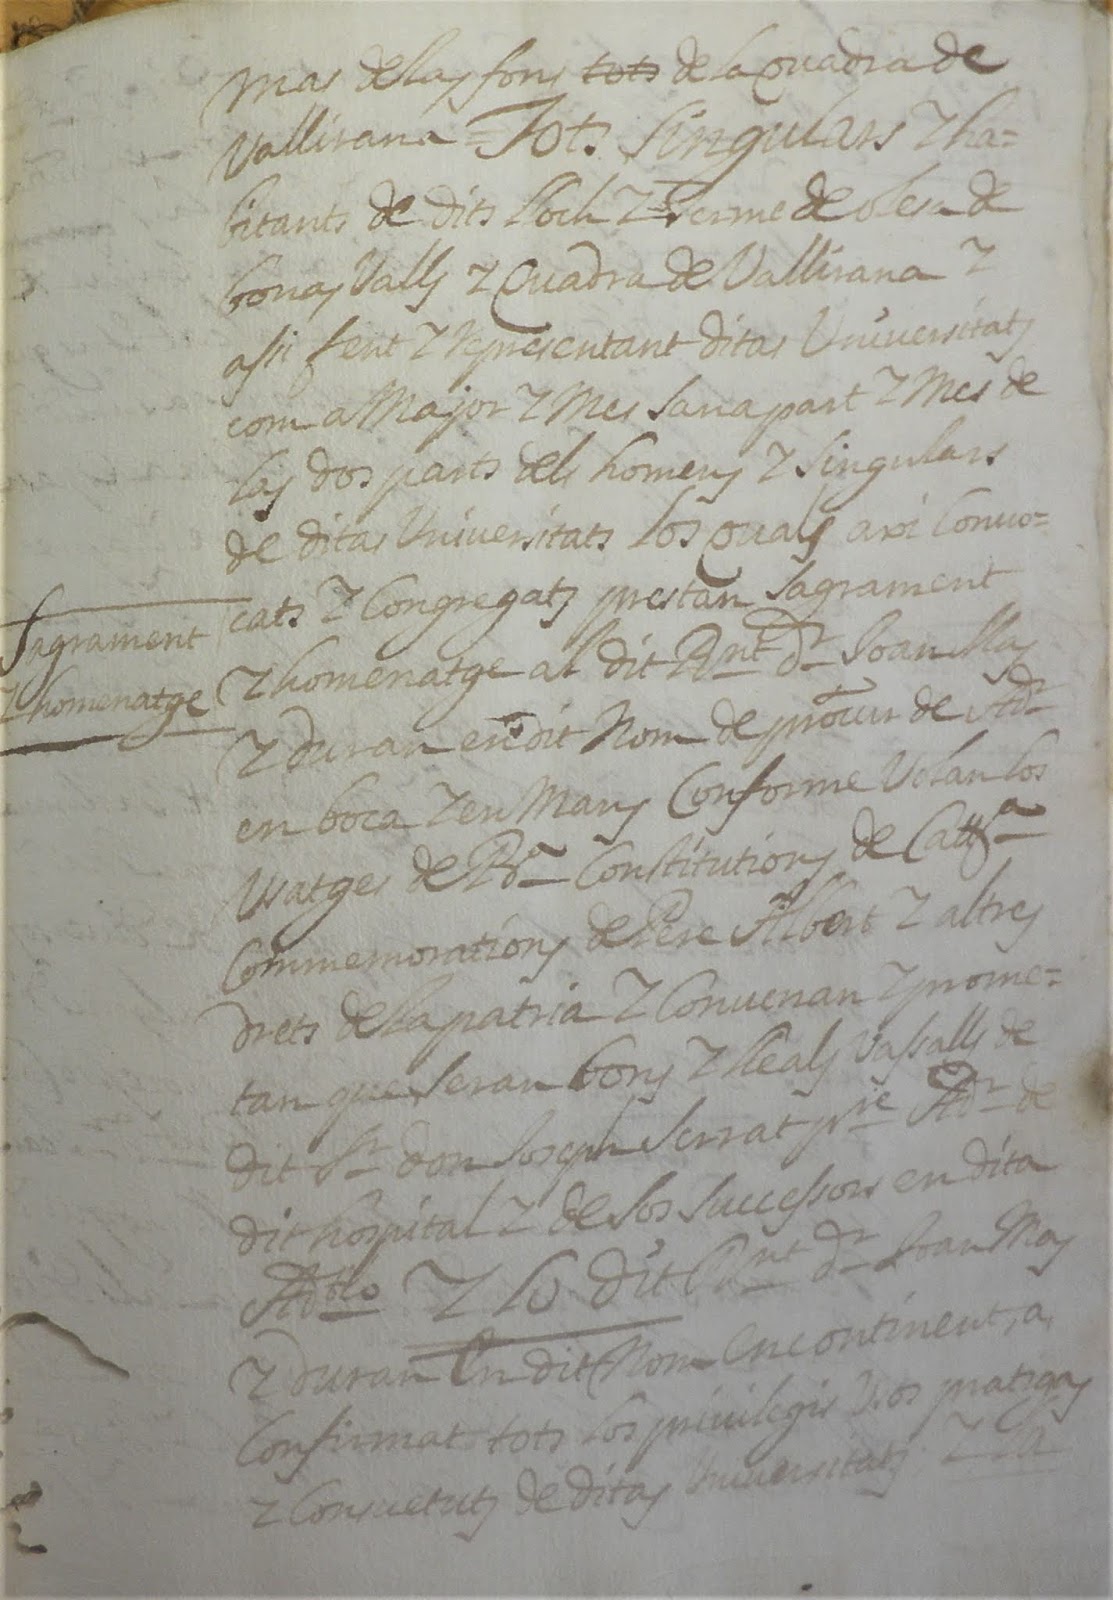 mas de las fons tots de la quadra de
Vallirana = Tots singulars y ha=
bitants de dits lloch y terme de olesa de
bonas Valls y Quadra de Vallirana y
assi fent y representant ditas Universitats
com a Major y Mes sana part y Mes de
las dos parts dels homens y singulars
de ditas Universitats los quals axi convo=
cats y Congregats prestan sagrament
sagrament
y homenatge
y homenatge al dit Rnt dr Joan Mas
y duran en dit Nom de procur de Adr
en boca y en Mans Conforme Volan los
Usatges de Bna Constitutions de Catta
Commemorations de Pere Albert y altres
drets de la patria y Convenan y prome=
tan que seran bons y lleals Vassalls de
dit Sr don Joseph Serrat pre Adr de
dit hospital y de sos successors en dita
Adtio y lo dit Rnt dr Joan Mas
y duran En dit Nom Encontinent, a
Confirmat tots los privilegis Usos pratigas
y Consuetuts de ditas Universitats y la